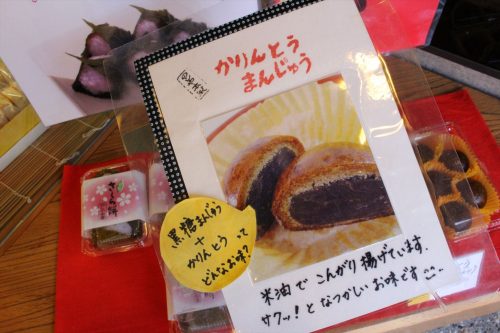 かりんとう
まんじゅう
黒糖まんじゅう
+
かりんとう って
どんなお味?
米油で こんがり 揚げています。
サクッ!と なつかしい お味です
さくら餅